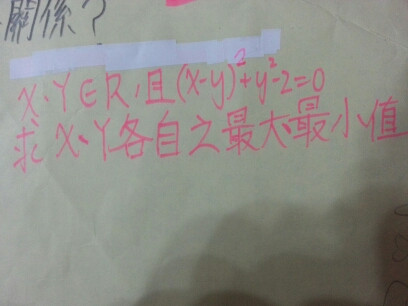 關係?
X、Y∈R,且(x-y)²+y²-2=0
求X、Y各自之最大、最小值